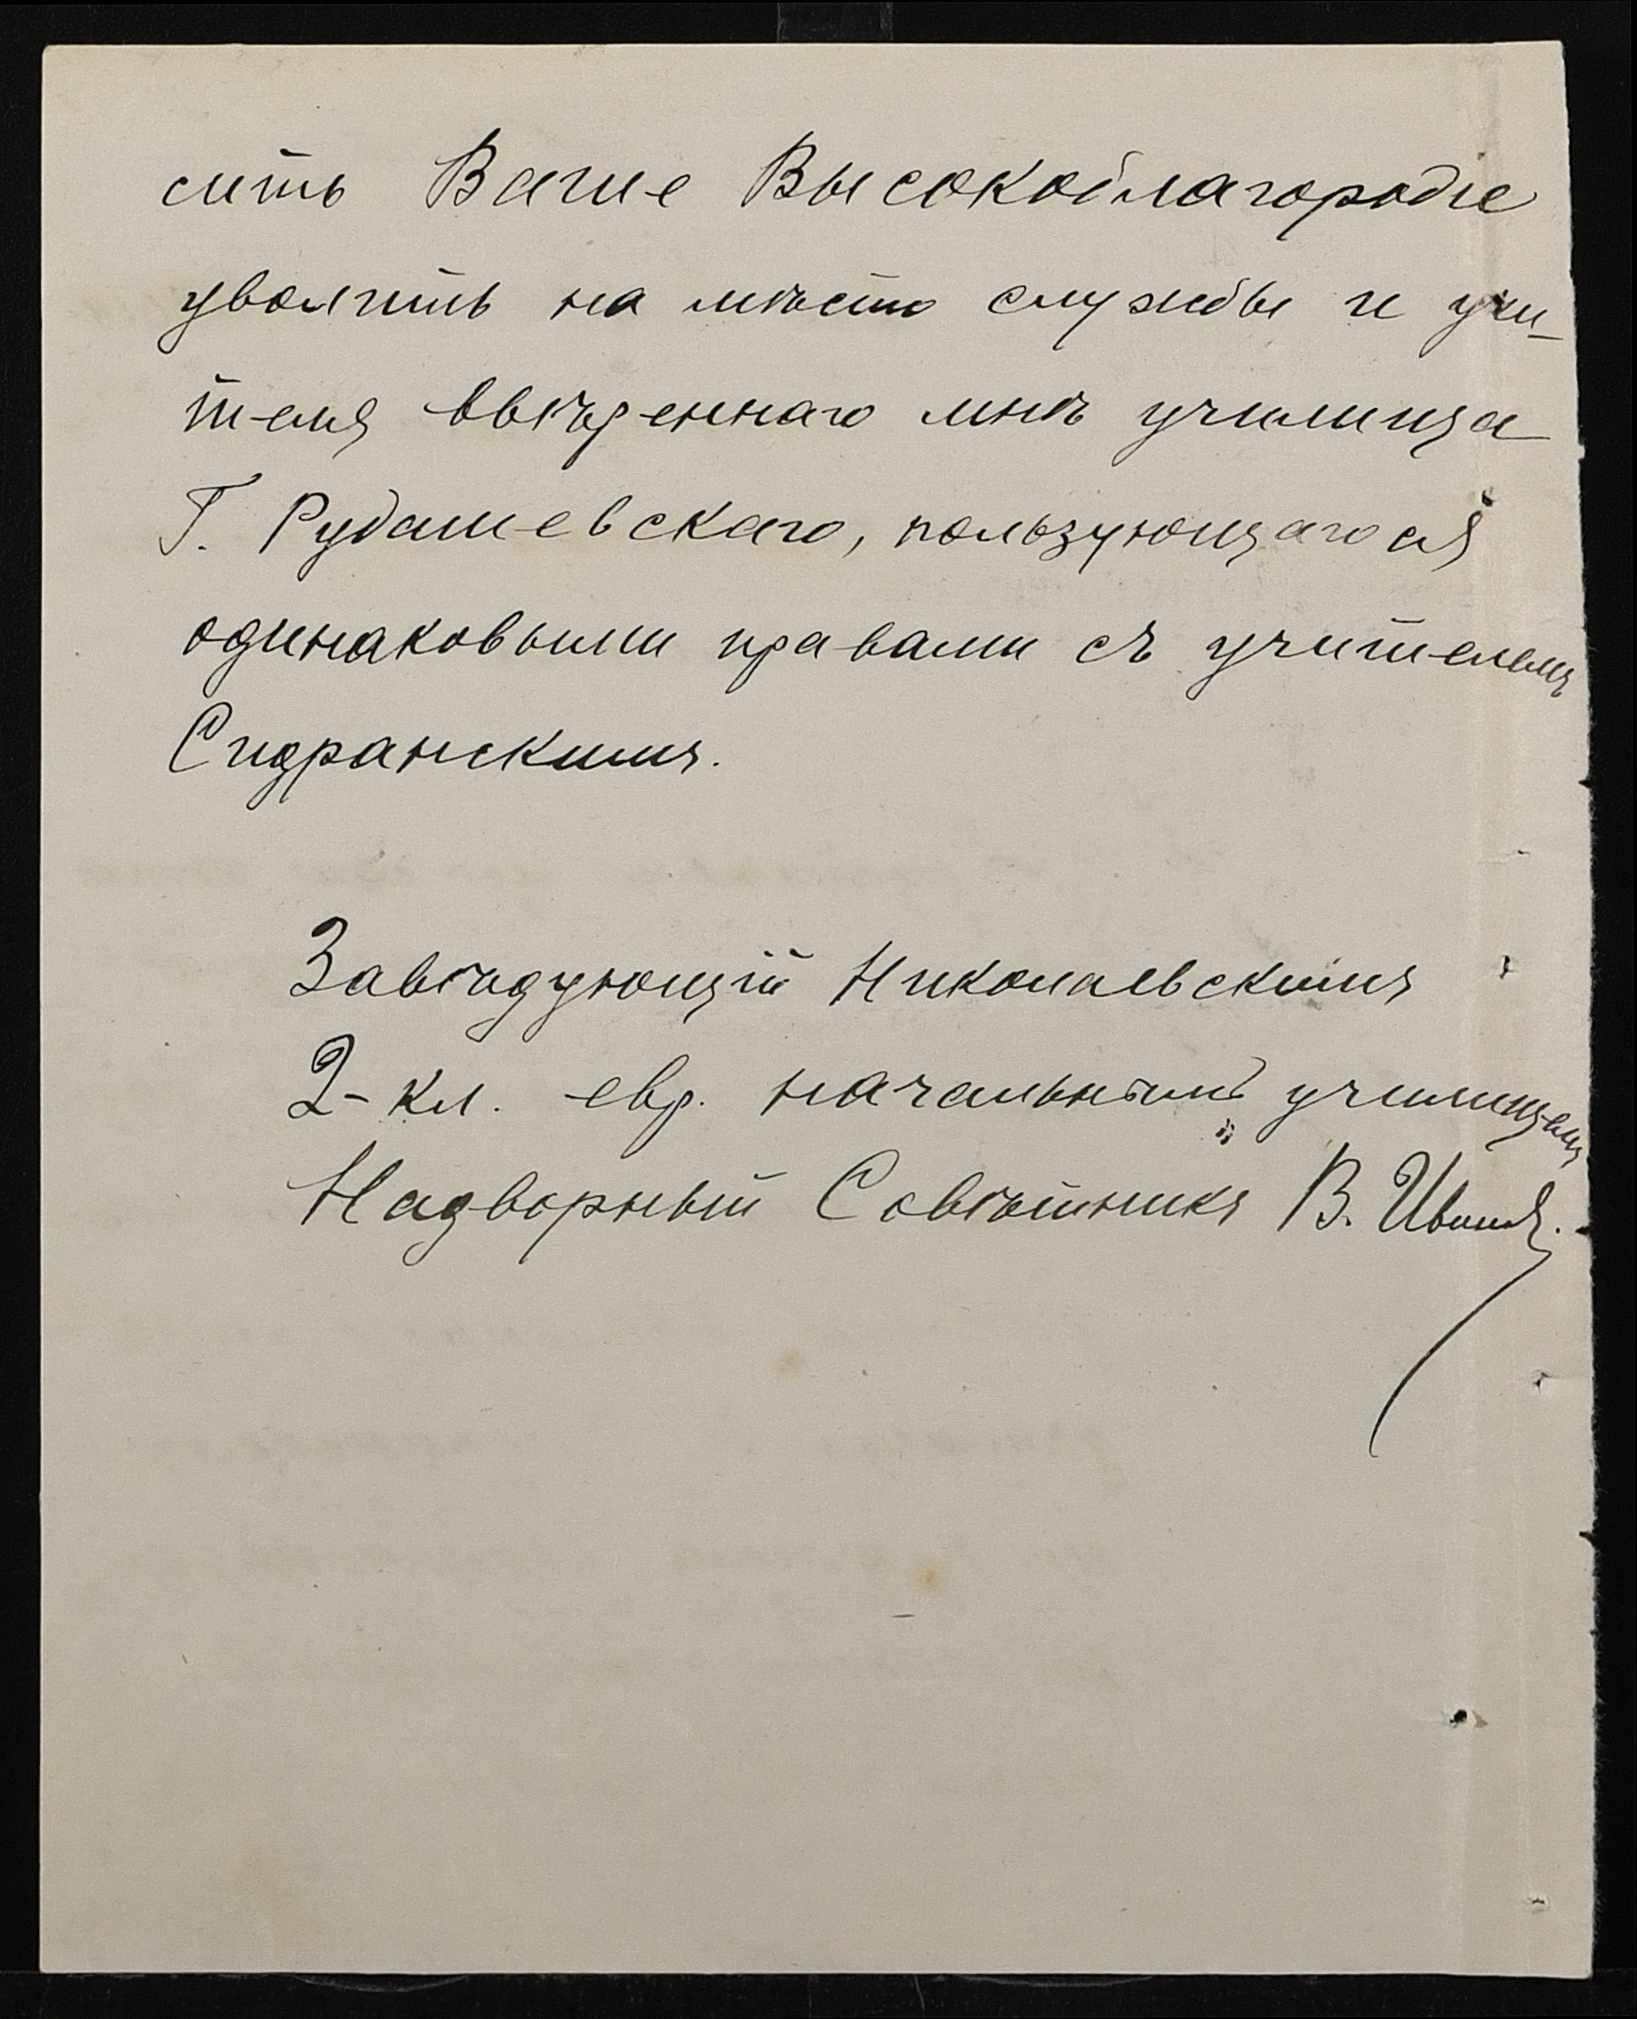 сить Ваше Высокоблагородіе
уволить на мѣсто службы и учи-
теля ввѣреннаго мнѣ училища
Г. Рудашевскаго, пользующагося
одинаковыми правами съ учителемъ
Сидранскимъ.
Завѣдующій Николаевскимъ
2-кл. евр. начальнымъ училищемъ
Надворный Совѣтникъ В.